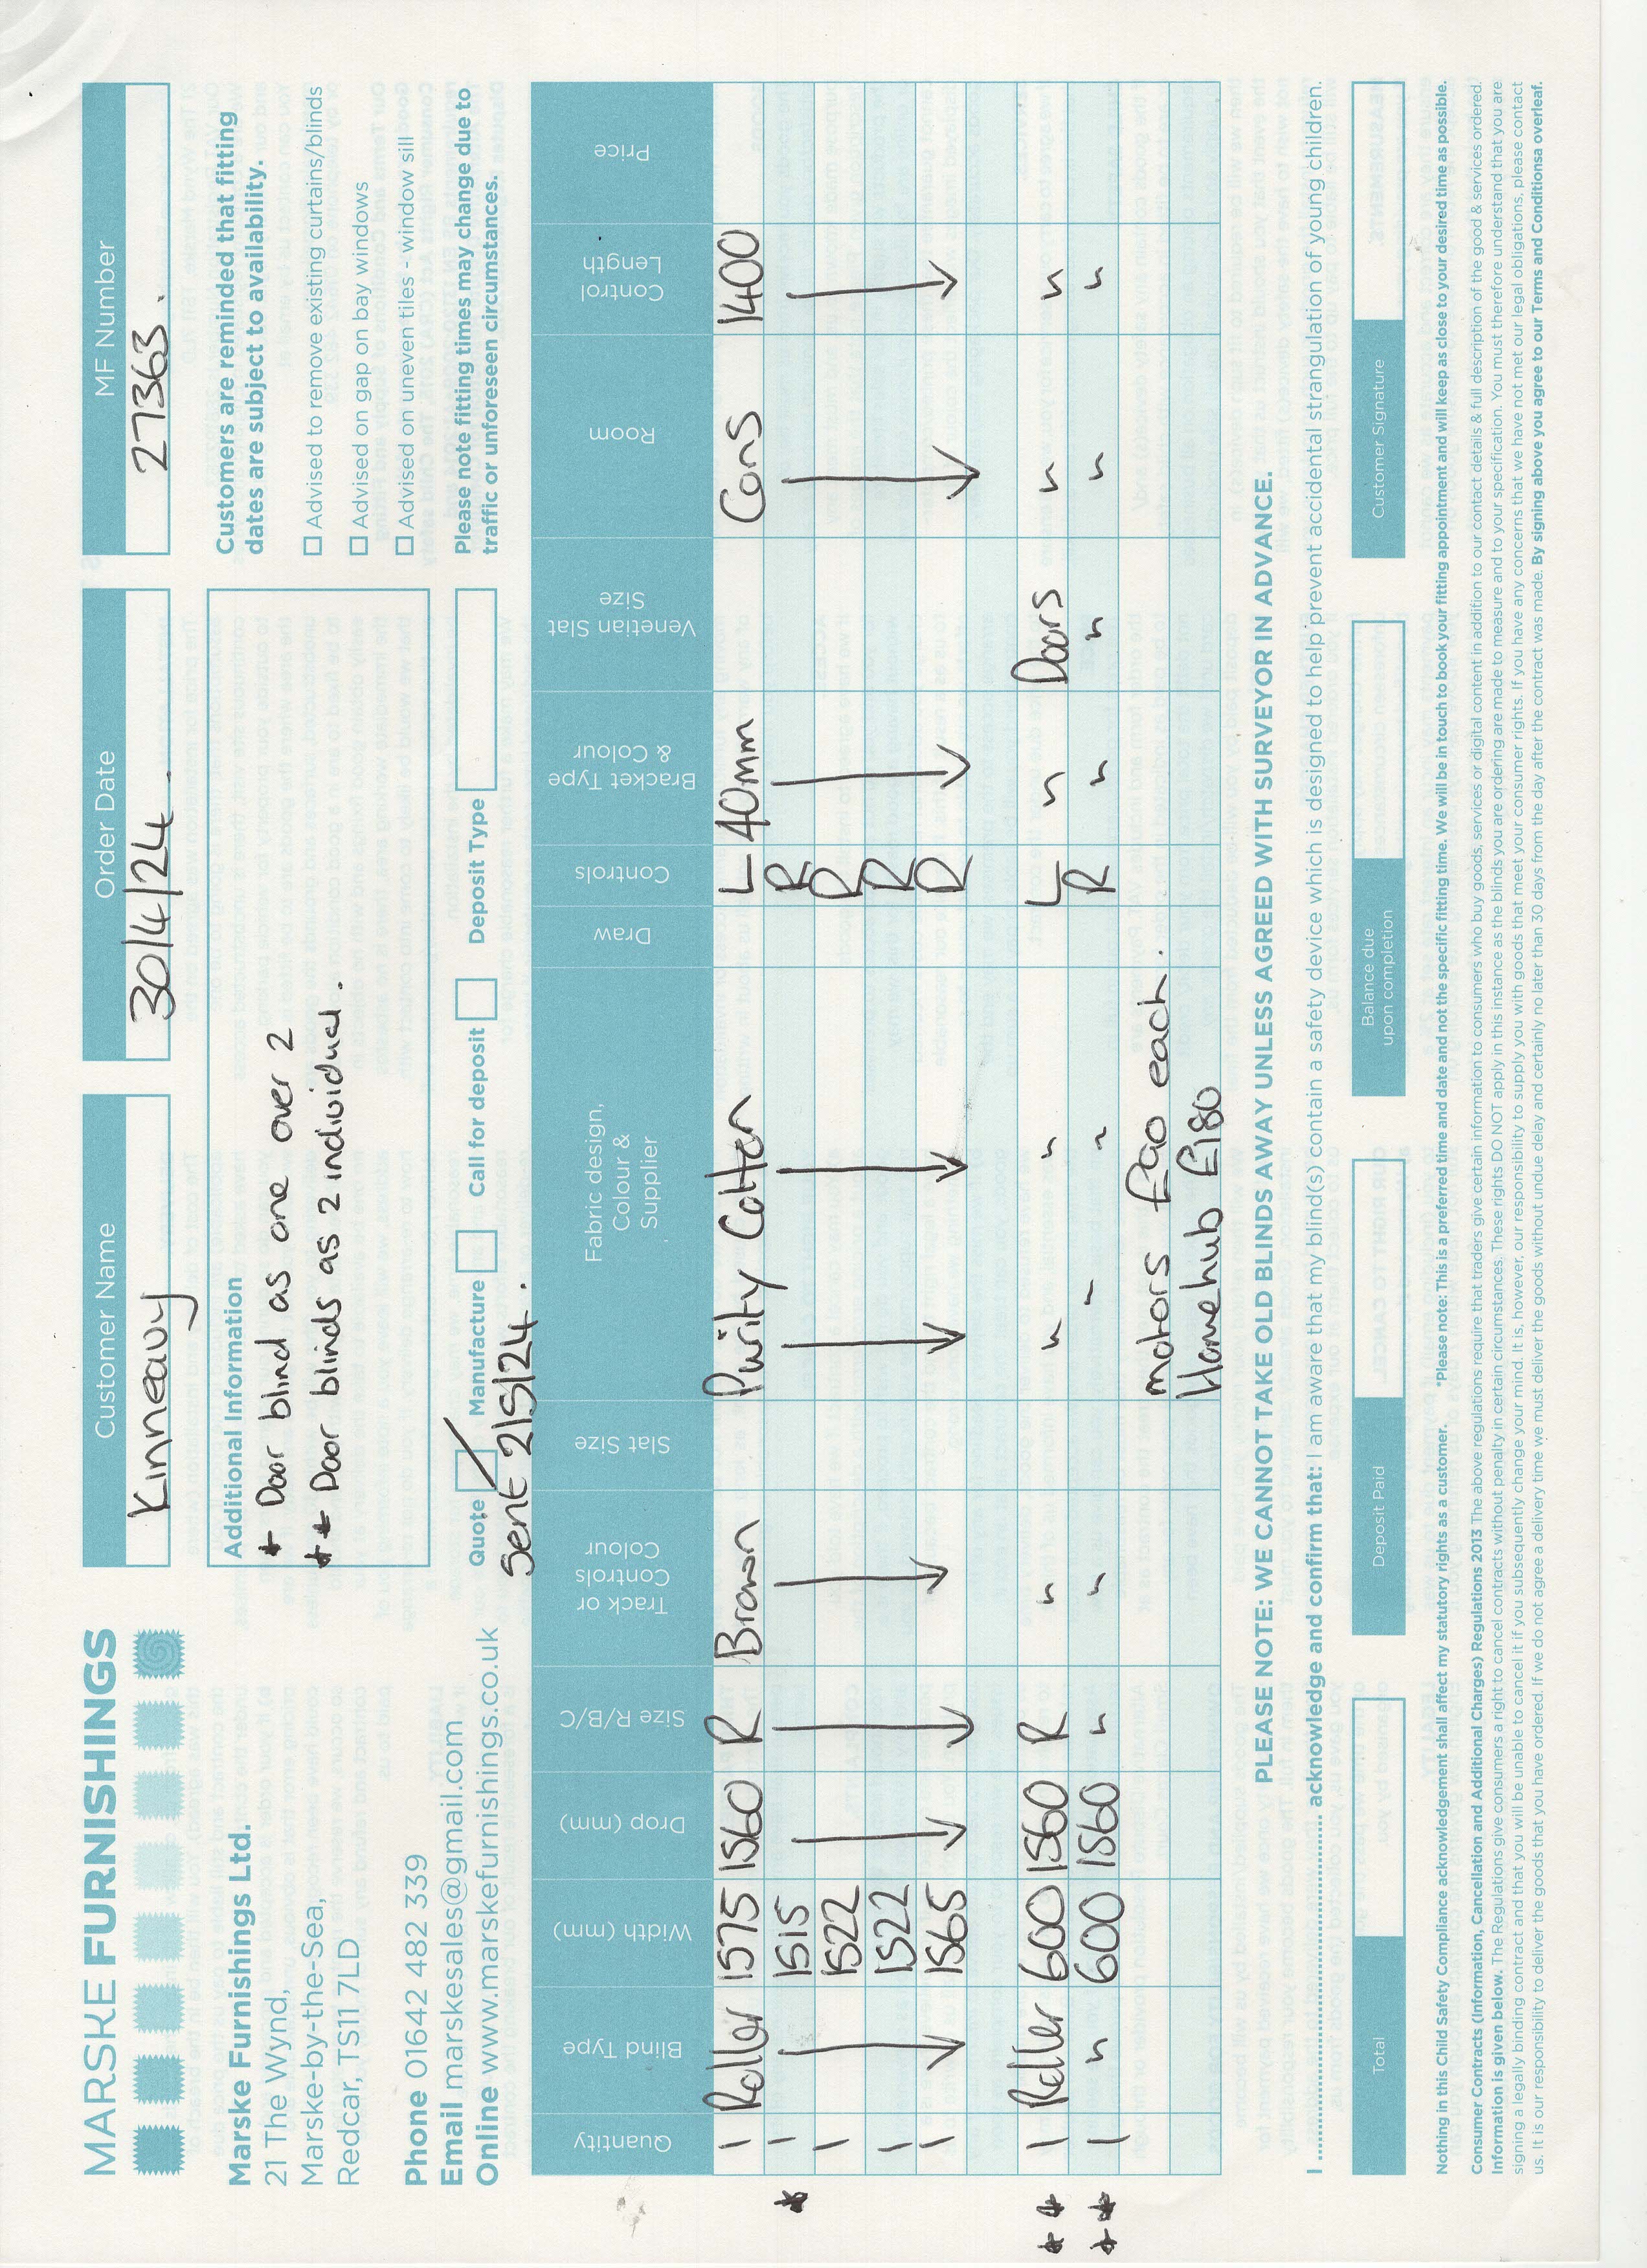 MARSKE FURNISHINGS
Marske Furnishings Ltd.
21 The Wynd,
Marske-by-the-Sea,
Redcar, TS11 7LD
Phone 01642 482 339
Email marskesales@gmail.com
Online www.marskefurnishings.co.uk
Customer Name
Kinneavy
Order Date
30/4/24.
MF Number
27363.
Additional Information
* Door blind as one over 2
** Door blinds as 2 individual.
Customers are reminded that fitting
dates are subject to availability.
Advised to remove existing curtains/blinds
Advised on gap on bay windows
Advised on uneven tiles - window sill
Quote Manufacture Call for deposit Deposit Type
Sent 2/5/24.
Please note fitting times may change due to
traffic or unforeseen circumstances.
Quantity Blind Type Width (mm) Drop (mm) Size R/B/C Track or Controls Colour Slat Size Fabric design, Colour & Supplier Draw Controls Bracket Type & Colour Venetian Slat Size Room Control Length Price
1 Roller 1575 1560 R Brown Purity Cotton L 40mm Cons 1400
* 1 1515 R
1 1522 R
1 1522 R
1 1565 R
** 1 Roller 600 1560 R " " " L " Doors " "
** 1 " 600 1560 " " " " R " " " "
motors £90 each.
Homehub £180
PLEASE NOTE: WE CANNOT TAKE OLD BLINDS AWAY UNLESS AGREED WITH SURVEYOR IN ADVANCE.
I .................... acknowledge and confirm that: I am aware that my blind(s) contain a safety device which is designed to help prevent accidental strangulation of young children.
Total
Deposit Paid
Balance due
upon completion
Customer Signature
Nothing in this Child Safety Compliance acknowledgement shall affect my statutory rights as a customer. *Please note: This is a preferred time and date and not the specific fitting time. We will be in touch to book your fitting appointment and will keep as close to your desired time as possible.
Consumer Contracts (Information, Cancellation and Additional Charges) Regulations 2013 The above regulations require that traders give certain information to consumers who buy goods, services or digital content in addition to our contact details & full description of the good & services ordered.
Information is given below. The Regulations give consumers a right to cancel contracts without penalty in certain circumstances. These rights DO NOT apply in this instance as the blinds you are ordering are made to measure and to your specification. You must therefore understand that you are
signing a legally binding contract and that you will be unable to cancel it if you subsequently change your mind. It is, however, our responsibility to supply you with goods that meet your consumer rights. If you have any concerns that we have not met our legal obligations, please contact
us. It is our responsibility to deliver the goods that you have ordered. If we do not agree a delivery time we must deliver the goods without undue delay and certainly no later than 30 days from the day after the contract was made. By signing above you agree to our Terms and Conditionsa overleaf.